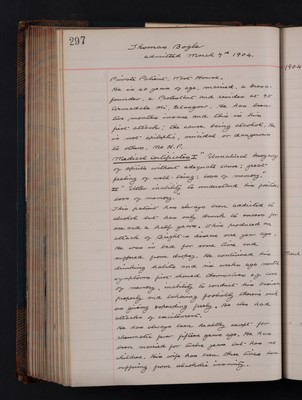 297
Thomas Boyle
admitted March 7th 1904.
1904
Private Patient, West House,
He is 40 years of age, married, a brass-
founder, a Protestant and resides at 25
Armadale St., Glasgow. He has been
two months insane and this is his
first attack; the cause being alcohol. He
is not epileptic, suicidal or dangerous
to others. No H.P.
Medical Certificates I "Unnatural buoyancy
of spirits without adequate cause; great
feeling of well-being; loss of memory."
II "Utter inability to understand his position
loss of memory.
This patient has always been addicted to
alcohol but has only drunk to excess for
one and a half years. This produced an
attack of Bright's disease one year ago.
He was in bed for some time and
suffered from dropsy. He continued his
drinking habits and six weeks ago mental
symptoms first showed themselves e.g. loss
of memory, inability to conduct his business
properly and behaving foolishly
as giving expensively. He also had
attacks of excitement.
He has always been healthy except for
rheumatic fever fifteen years ago. He has
been married for twelve years but has no
children. His wife has been three times
suffering from alcoholic insanity.